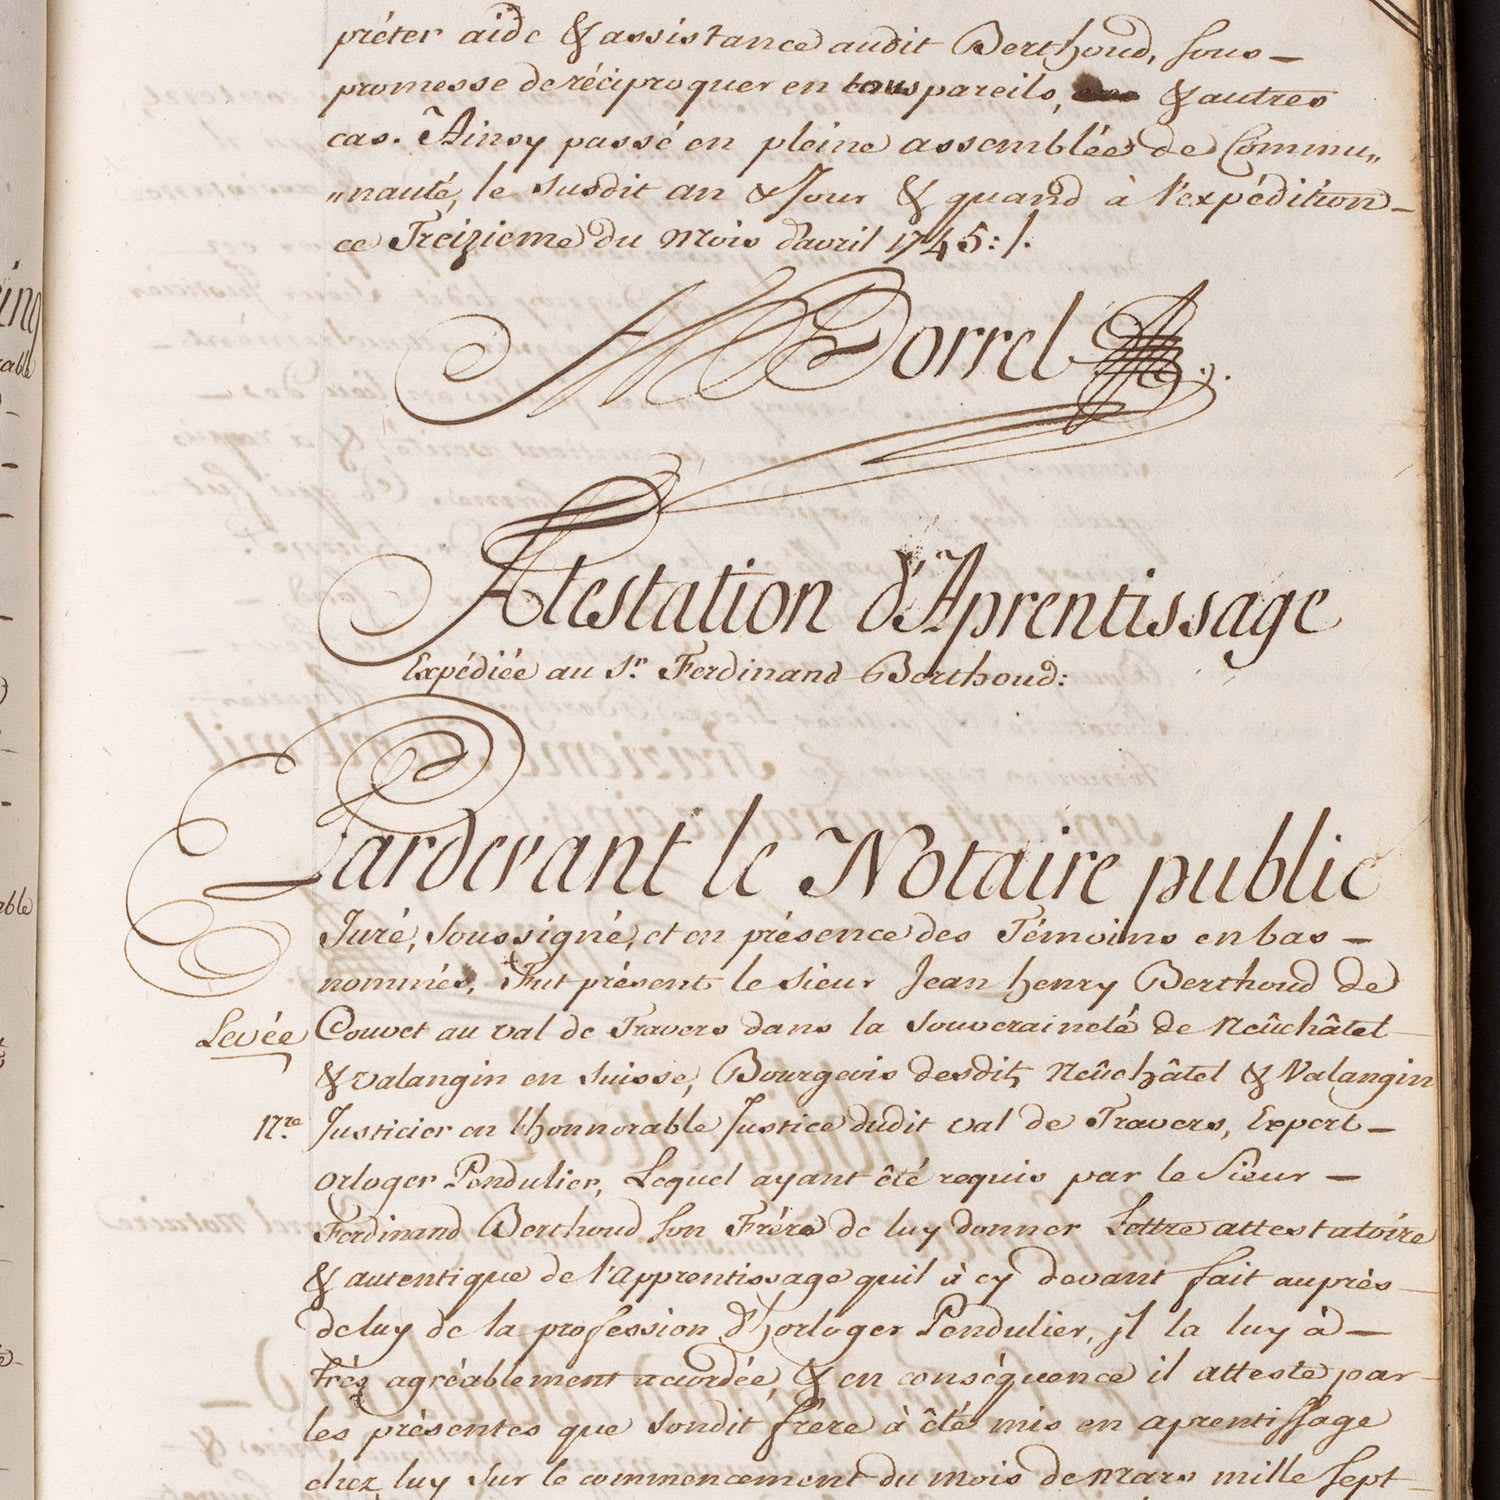 prêter aide & assistance audit Berthoud, sous –
promesse de réciproquer en tous pareils, & autres
cas. Ainsy passé en pleine assemblée de Commu„
„nauté, le susdit an & Jour & quand à l'expédition –
ce Treizieme du mois d'avril 1745:/.
Borrel
Atestation d'Aprentissage
Expédiée au Sr. Ferdinand Berthoud:
Pardevant le Notaire public
Juré, soussigné, et en présence des Témoins en bas –
nommés, Fut présent le sieur Jean henry Berthoud de
Levée Couvet au val de Travers dans la souveraineté de Neûchâtel
& valangin en suisse, Bourgeois desdits Neûchâtel & Valangin
Justicier en l'honnorable Justice dudit val de Travers, Expert –
orloger Pendulier, Lequel ayant êté requis par le Sieur –
Ferdinand Berthoud son Frére de luy donner Lettre attestatoire
& autentique de l'apprentissage quil à cy devant fait auprès
de luy de la profession d'horloger Pendulier, jl la luy à –
trés agréablement accordée, & en conséquence il atteste par
les présentes que sondit frere à êté mis en aprentissage
chez luy sur le commencement du mois de mars mille sept –